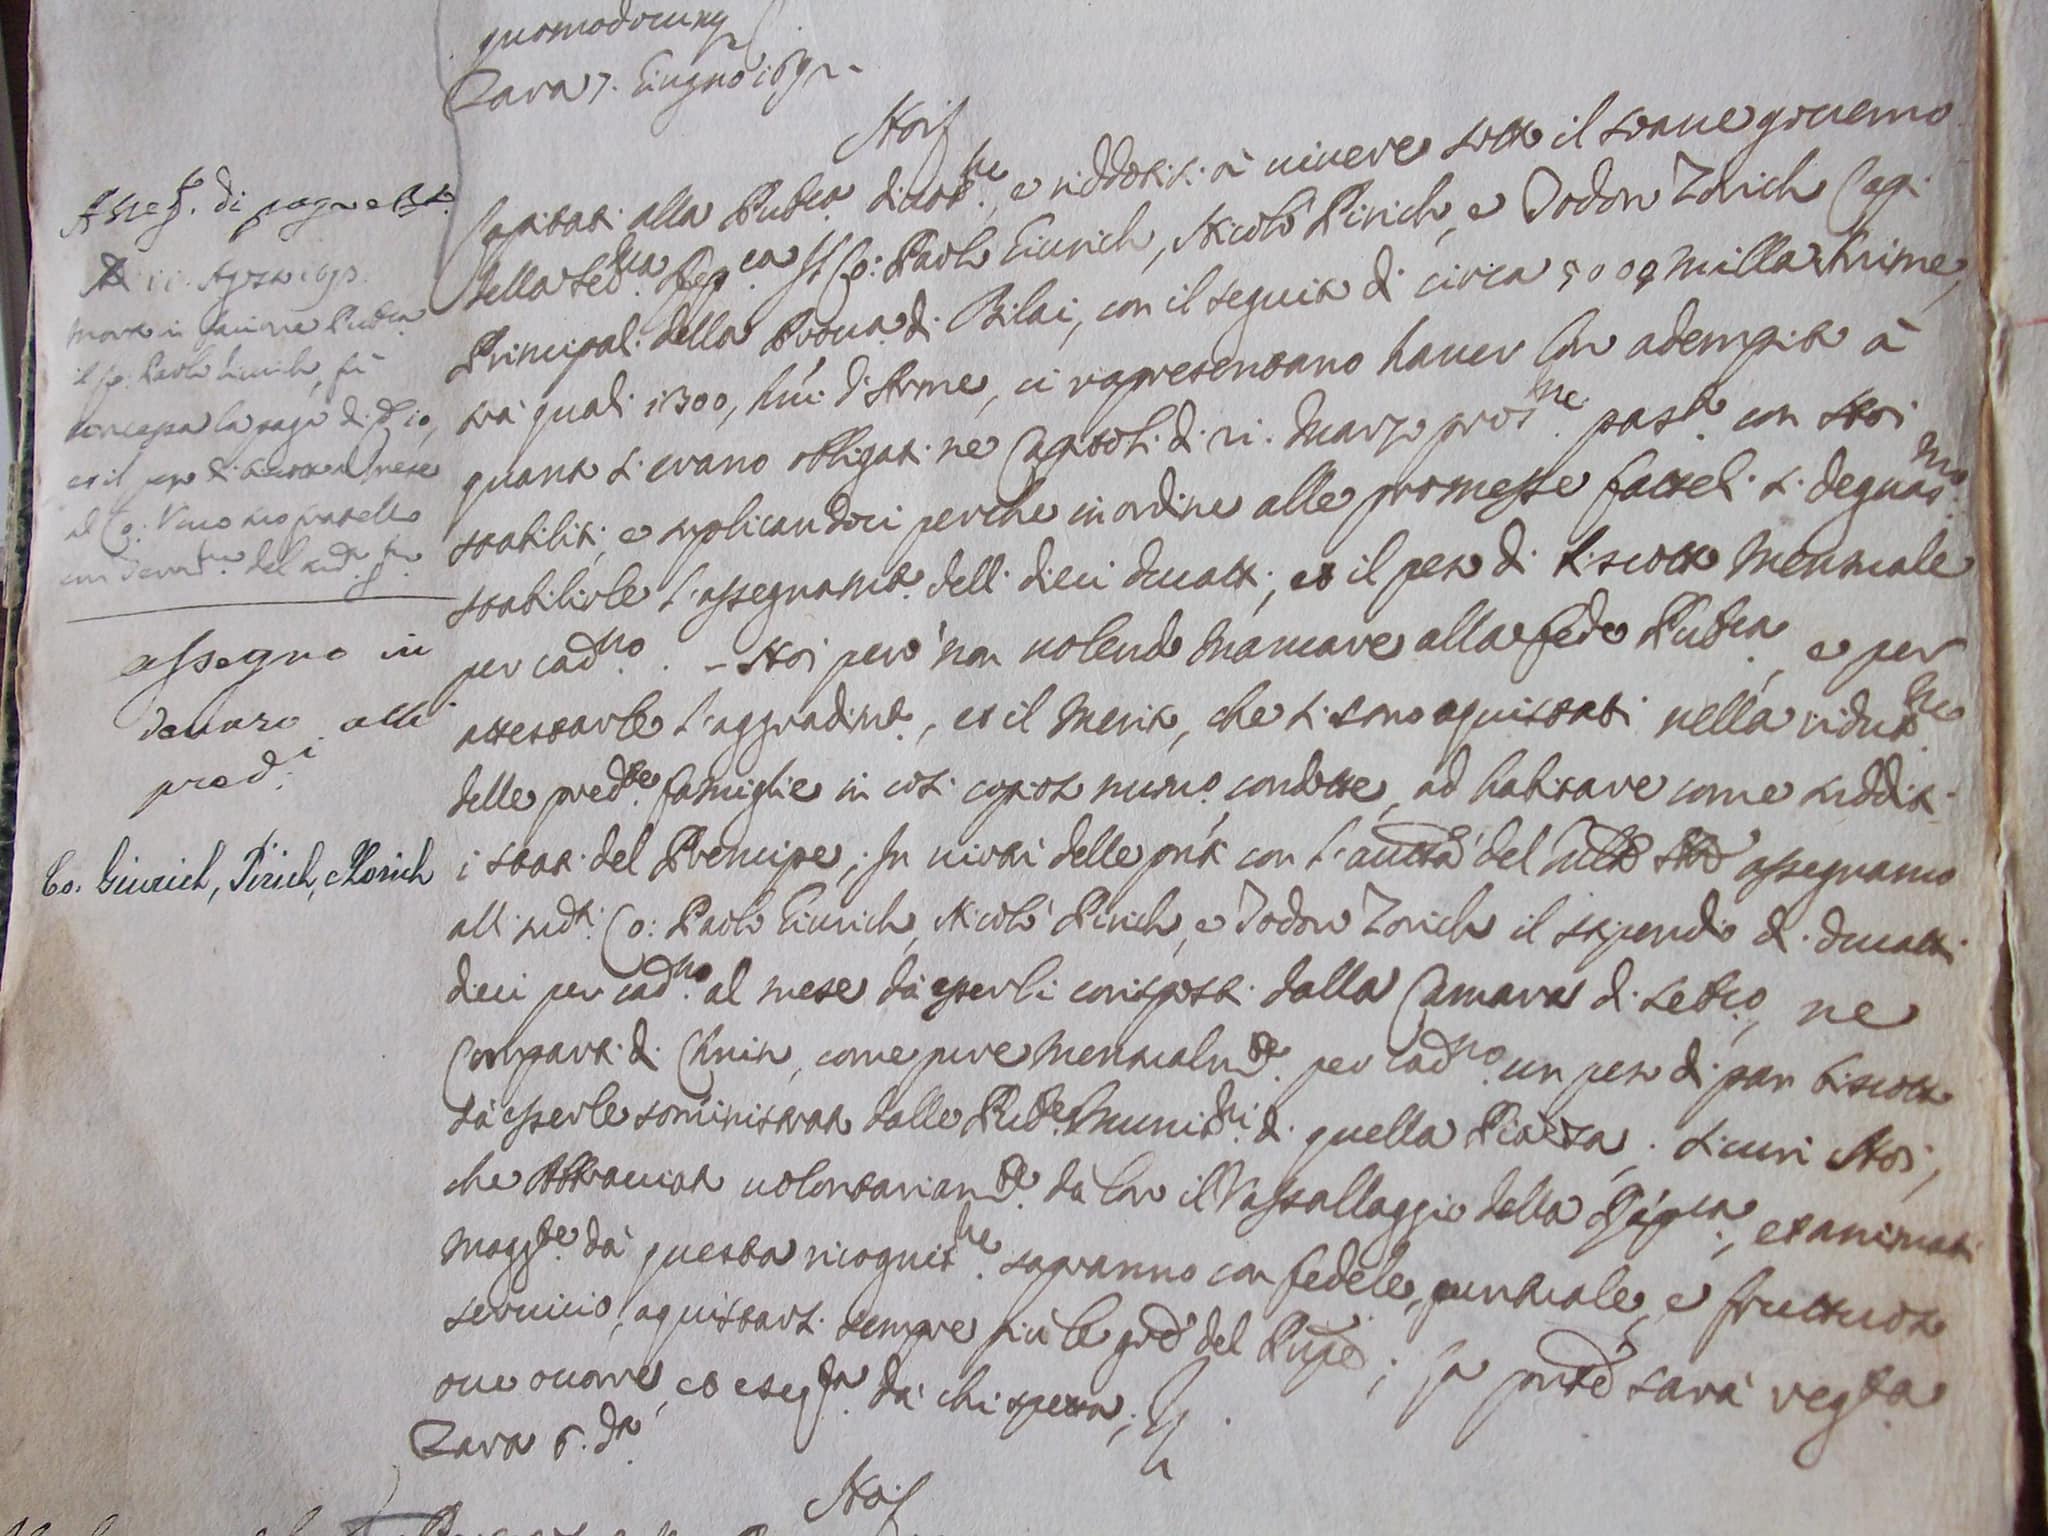 quomodocunq
Zara 7. Giugno 169
Noi
Capitati alla Pub.ca diuot.ne, e riddotisi à uiuere sotto il soaue gouerno
della Ser.ma Rep.ca Co: Paolo Giurich, Nicolò Pirich, e Todor Zorich Capi
Principali della Prou.a di Bilai, con il seguito di circa milla Anime,
trà quali 1300, hui: d'Arme, ci rapresentano hauer loro adempito à
quanto si erano obligati ne Capitoli di 21. Marzo pros.mo pass.to con Noi
stabiliti, e suplicandoci perche in ordine alle promesse fatteli si degnas.mo
stabilirle l'assegnam.to delli dieci ducatti, et il peso di biscotto mensuale
per cad.no. - Noi però non uolendo mancare alla fede Pub.ca, e per
attestarle l'aggradim.to, et il merito, che si sono aquistati nella ridut.ne
delle pred.te famiglie in così copioso num.o condotte, ad habitare come sudditi
i stati del Prencipe; In uirtù delle pñti con l'auttà del assegnamo
alli sud.ti Co: Paolo Giurich, Nicolò Pirich, e Todor Zorich il stipendio di ducatti
dieci per cad.no al mese da esserli corisposti dalla Camara di Seb.co, ne
Comparti di Chnin, come pure mensualm.te per cad.no un peso di pan biscotto
da esserle somministrato dalle Pub.e Muniz.ni di quella Piazza; sicuri Noi,
che Abbracciato uolontariam.te da loro il Vassallaggio della Rep.ca, et animati
magg.te da questa ricognit.ne sapranno con fedele, puntuale, e fruttuoso
seruicio, aquistarsi sempre più le grẽ del Pnpẽ; la pñte sarà reg.ta
oue occorre, et eseg.ta da chi spetta;
Zara 6. d.to
Noi
Asseg. di paga
11. Agosto 1693.
Morto in fatione Pub.ca
il Co: Paolo Giurich, fù
concessa la paga di 10,
et il peso di biscotto al mese
al Co: Vuco suo fratello
assegno in
denaro alli
pred.i
Co. Giurich, Pirich, e Zorich